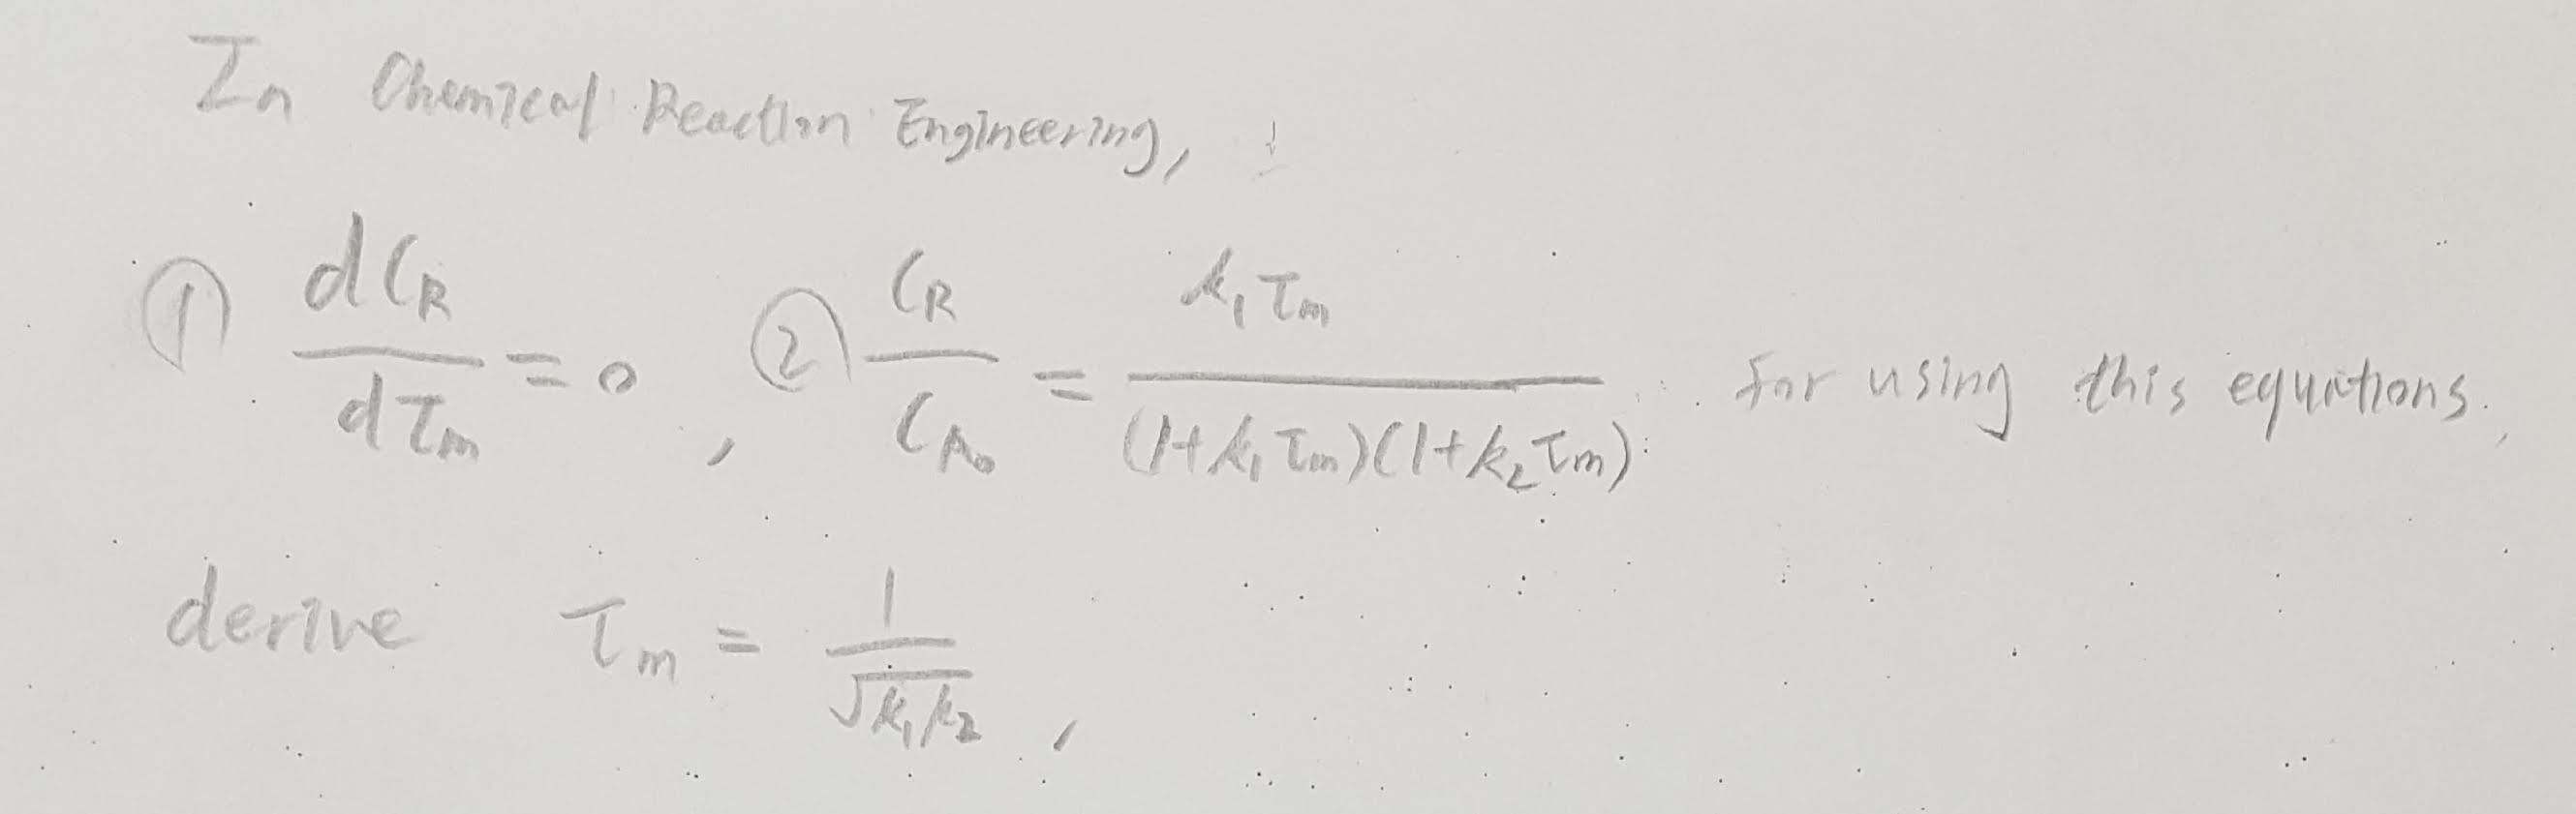 In Chemical Reaction Engineering,
① dC_R/dτ_m = 0, ② C_R/C_A₀ = k₁τ_m/((1+k₁τ_m)(1+k₂τ_m)) for using this equations,
derive τ_m = 1/√(k₁k₂),